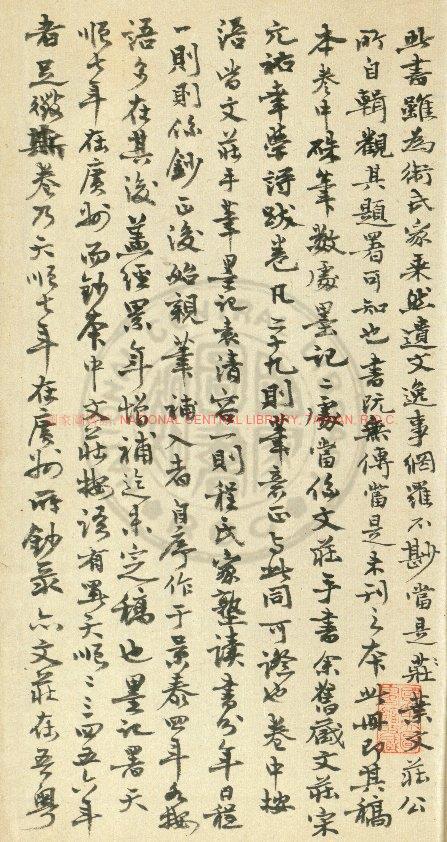 此書雖為術氏家乘然遺文逸事網羅不尠當是葉文莊公
所自輯觀其題署可知也書既無傳當是未刊之本此冊即其稿
本卷中硃筆數處墨記二處當係文莊手書余舊藏文莊宋
元祐幸學詩跋卷凡二十九則筆意正与此同可證也卷中按
語皆文莊手筆墨記袁清容一則程氏家塾讀書分年日程
一則則係鈔正後始親筆補入者自序作于景泰四年而按
語多在其後蓋經累年增補迄未定稿也墨記署天
順七年在廣州而鈔本中文莊按語有署天順二三四五六年
者足徵斯卷乃天順七年在廣州所鈔彔亦文莊在吾粵
國家圖書館, NATIONAL CENTRAL LIBRARY, TAIWAN, R.O.C.